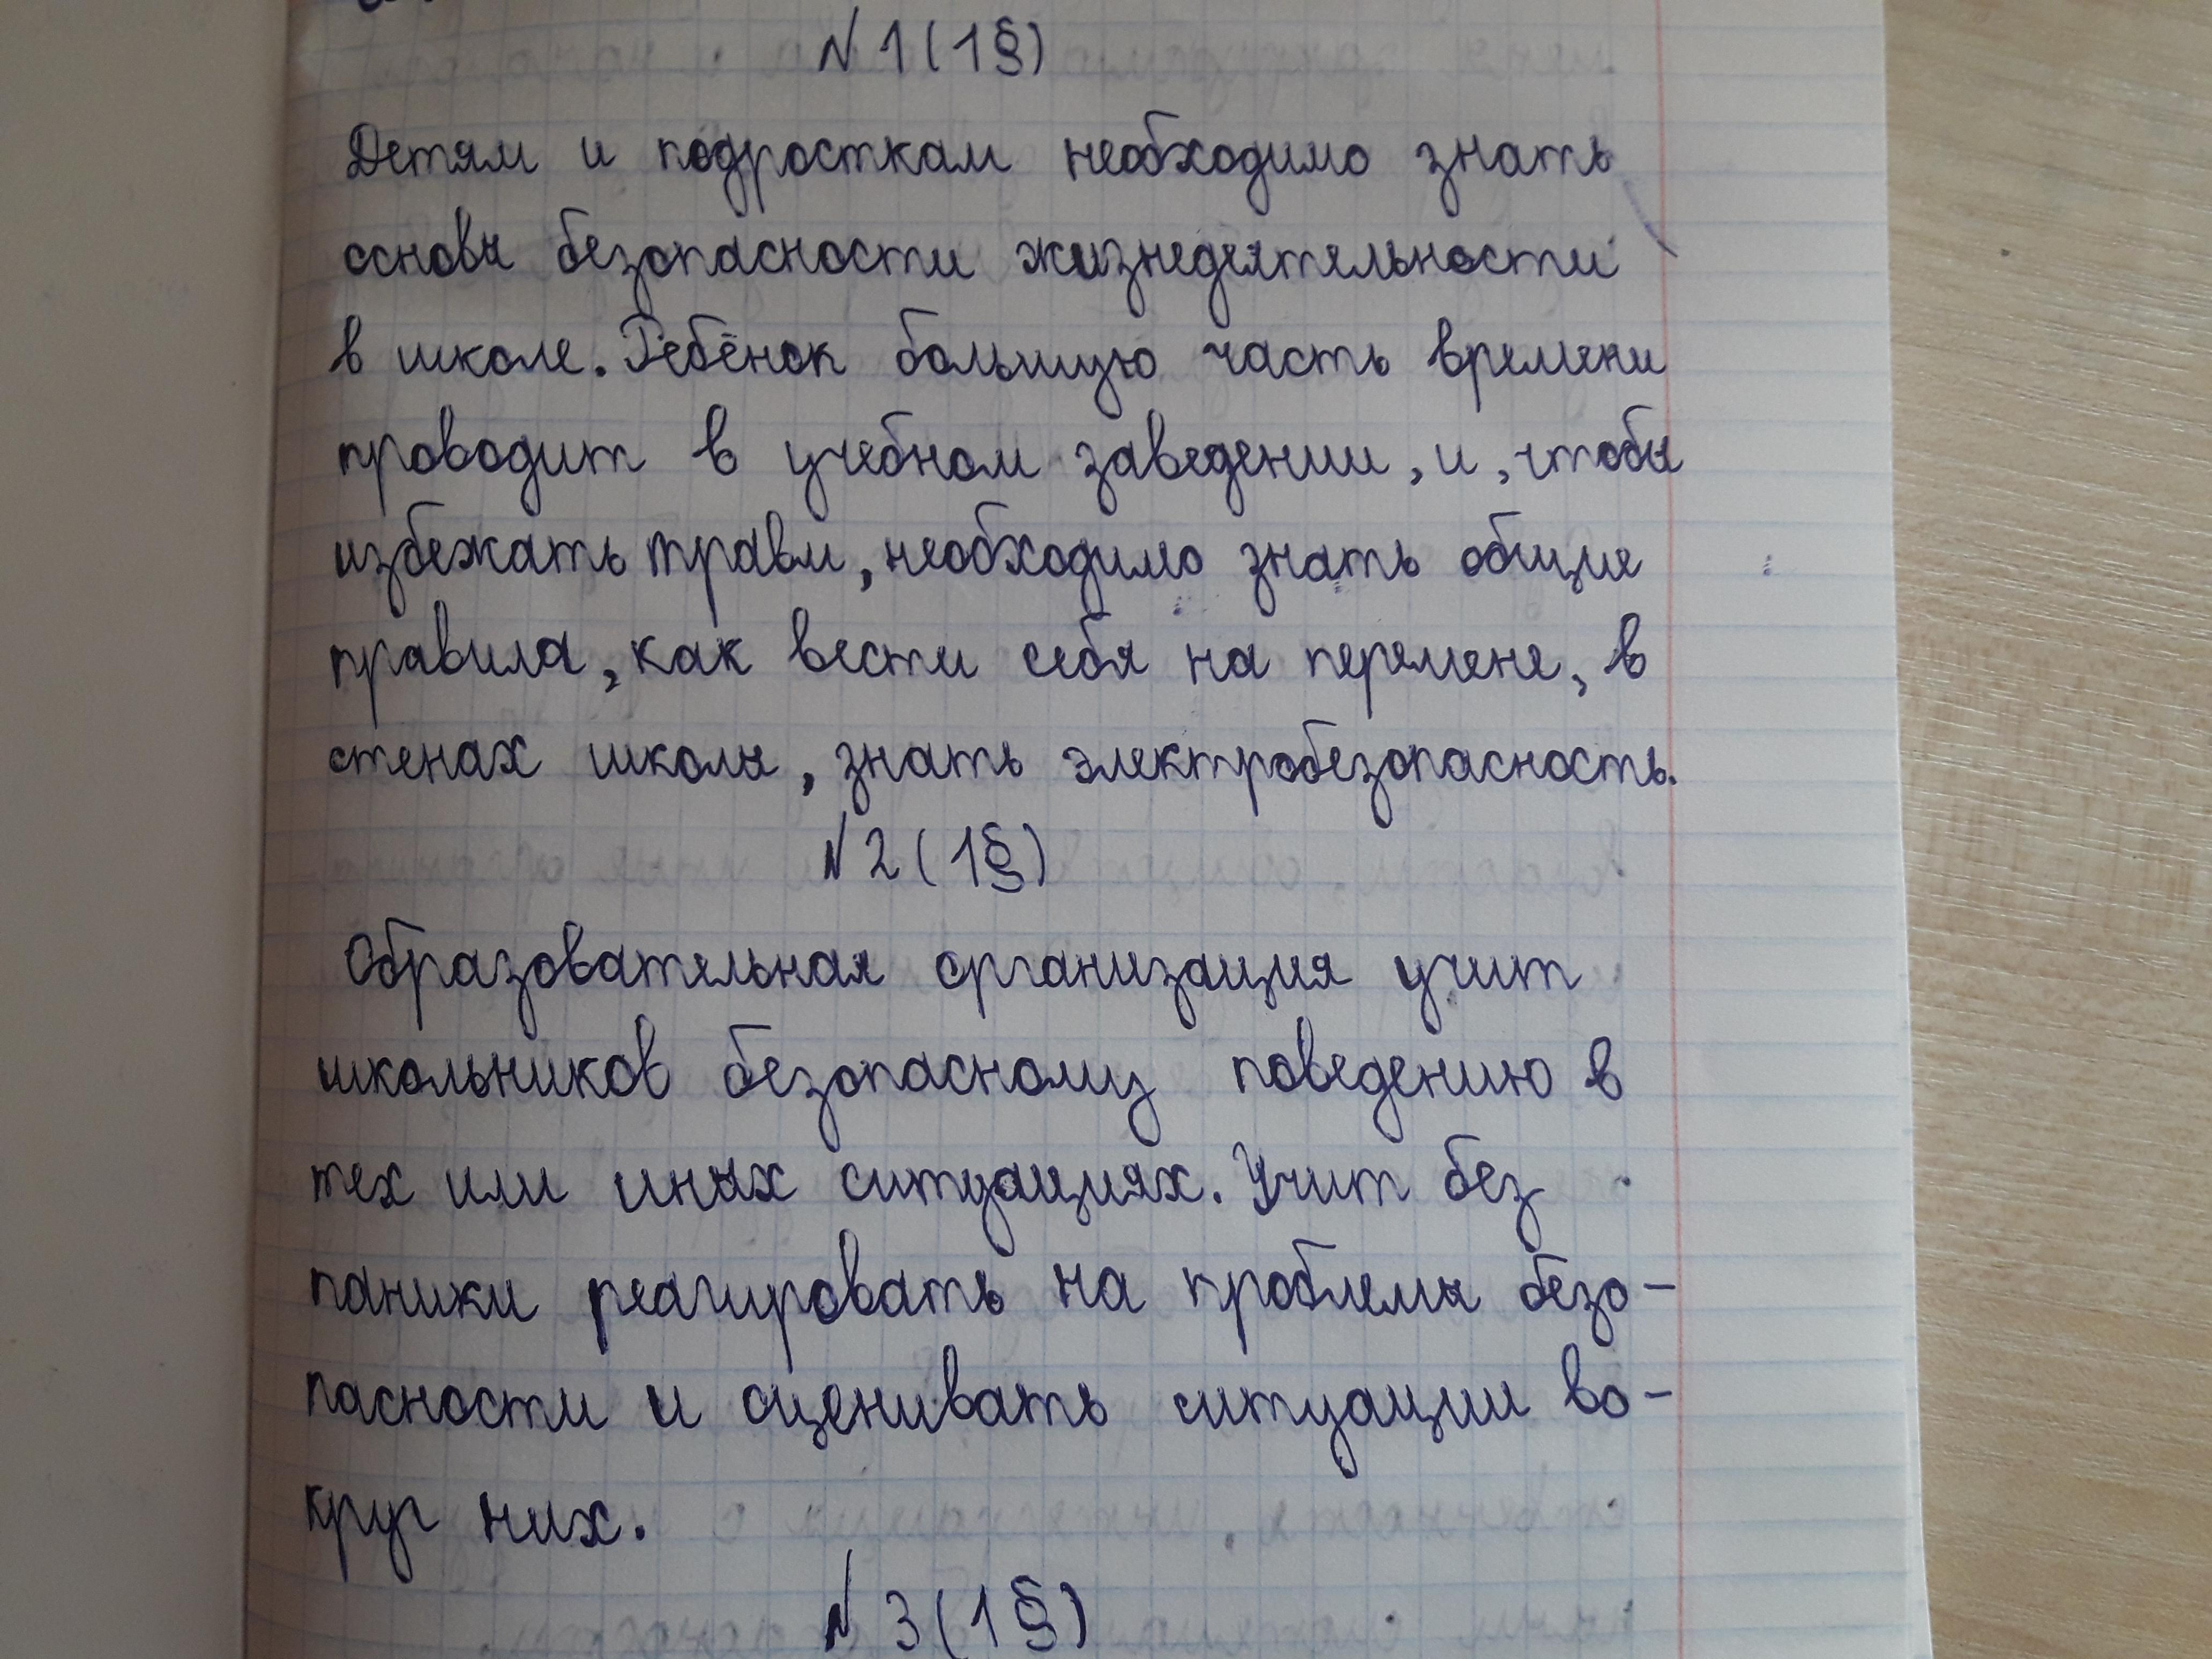 № 1 (1§)
Детям и подросткам необходимо знать
основы безопасности жизнедеятельности
в школе. Ребёнок большую часть времени
проводит в учебном заведении, и, чтобы
избежать травм, необходимо знать общие
правила, как вести себя на перемене, в
стенах школы, знать электробезопасность.
№ 2 (1§)
Образовательная организация учит
школьников безопасному поведению в
тех или иных ситуациях. Учит без
паники реагировать на проблемы безо-
пасности и оценивать ситуации во-
круг них.
№ 3 (1§)